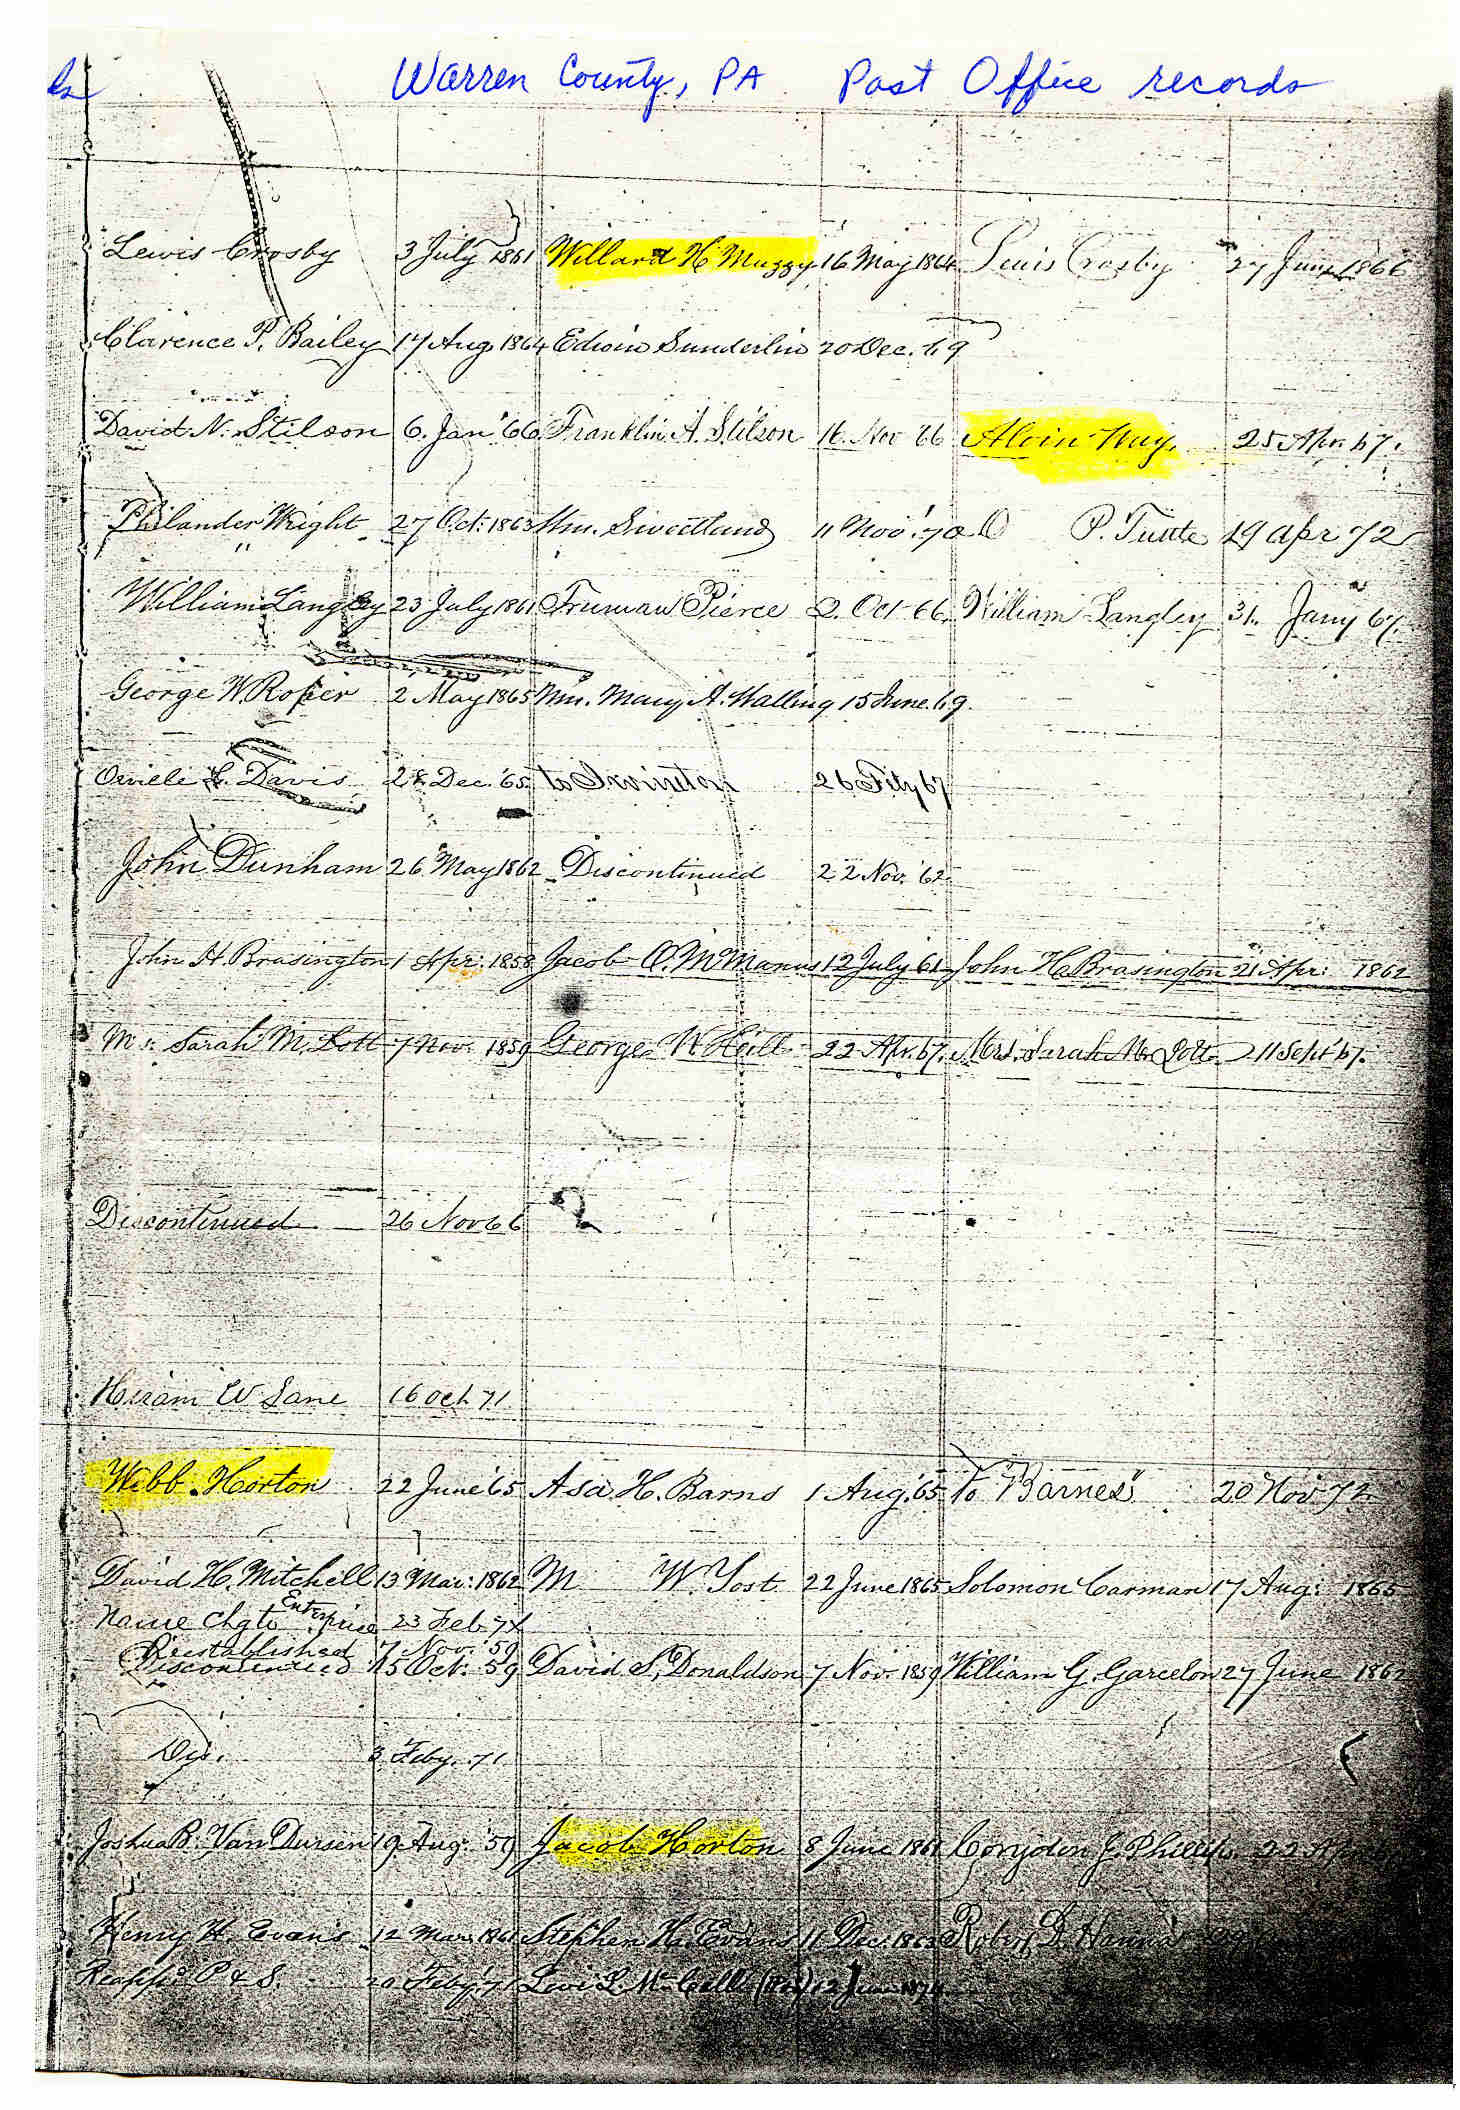 Warren County, PA Post Office records
Lewis Crosby 3 July 1861 Willard H Muzzy 16 May 1864 Lewis Crosby 27 June 1866
Clarence P. Bailey 17 Aug 1864 Edwin Sunderlin 20 Dec. 69
David N. Stilson 6. Jan '66 Franklin A. Stilson 16. Nov 66 Alvin Nuy, 25 Apr. 67.
Philander Wright 27 Oct: 1863 Wm. Sweetland 11 Nov. '70 O P. Tuttle 19 Apr 72
"
William Langley 23 July 1861 Truman Pierce 2. Oct 66. William Langley 31. Jany 67.
George W. Roper 2 May 1865 Mrs. Mary A. Walling 15 June. 69.
Orville L. Davis 28 Dec. '65. to Irvineton 26 Feby 67
John Dunham 26 May 1862 Discontinued 22 Nov. '62.
John H Brasington 1 Apr: 1858 Jacob O. McManus 12 July 61 John H. Brasington 21 Apr: 1862
Mrs. Sarah M. Lott 7 Nov. 1859 George W Hill 22 Apr. 67. Mrs. Sarah M. Lott 11 Sept '67.
Discontinued 26 Nov 66
Hiram W Lane 16 Oct 71
Webb Horton 22 June '65 Asa H. Barns 1 Aug. '65 To "Barnes" 20 Nov 72
David H. Mitchell 13 Mar: 1862 M W. Yost 22 June 1865 Solomon Carman 17 Aug: 1865
Name chg to Enterprise 23 Feb 7
Reestablished 7 Nov. '59
Discontinued 15 Oct. '59 David S. Donaldson 7 Nov. 1859 William G. Garcelon 27 June 1862
Dis. 3 Feby. 71
Joshua B. Van Dursen 19 Aug. '59 Jacob Horton 8 June 1861 Corydon J. Phillips 22 Apr
Henry H. Evans 12 Mar. 1861 Stephen H. Evans 11 Dec. 1862 Robert D. Hanna
Reappd P & S. 20 Feby. '71 Levi L. McCall 12 June